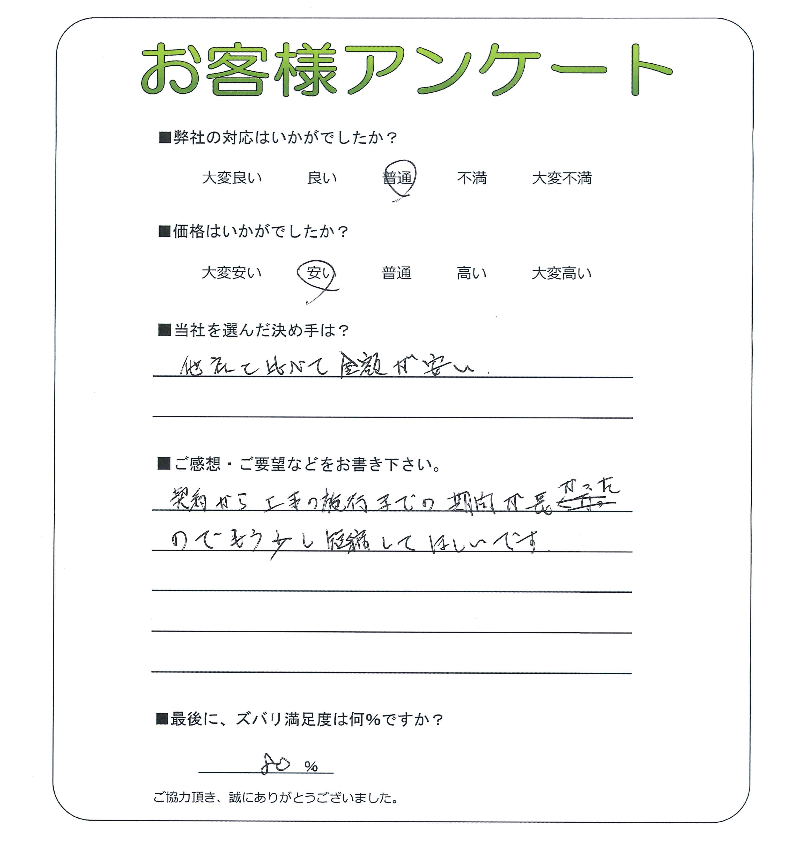 お客様アンケート
■弊社の対応はいかがでしたか？
大変良い 良い 普通 不満 大変不満
■価格はいかがでしたか？
大変安い 安い 普通 高い 大変高い
■当社を選んだ決め手は？
他社と比べて金額が安い.
■ご感想・ご要望などをお書き下さい。
契約から工事の施行までの期間が長かった
のでもう少し短縮してほしいです.
■最後に、ズバリ満足度は何%ですか？
80 %
ご協力頂き、誠にありがとうございました。